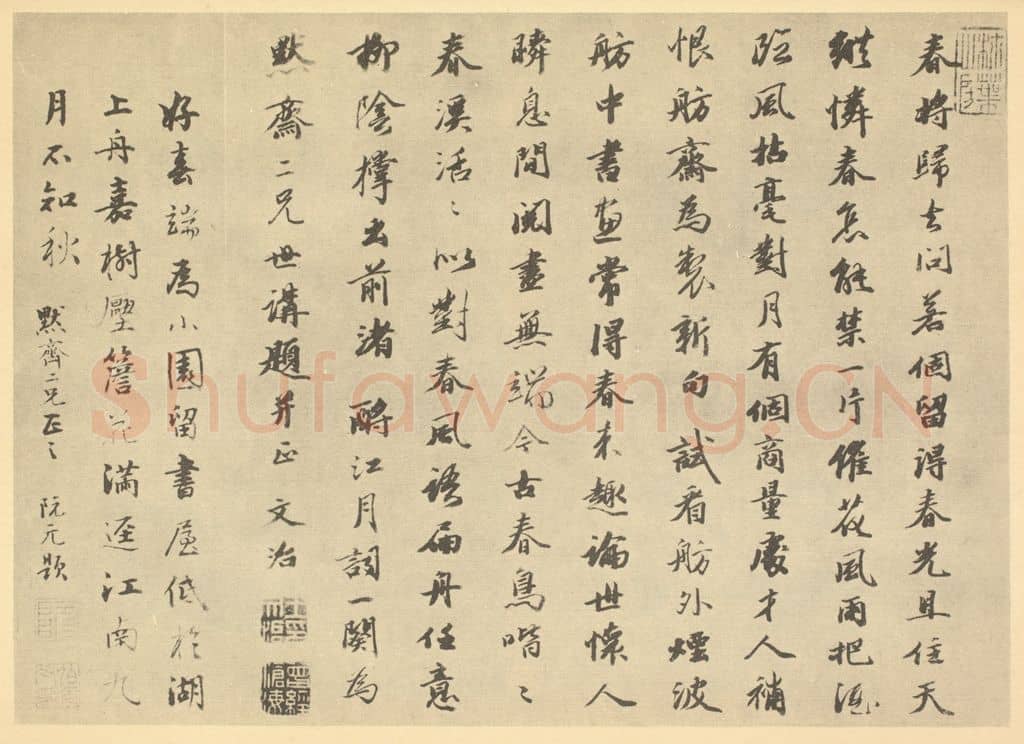 春將歸去問若個留得春光且住天
縱憐春怎能禁一片催花風雨把酒
臨風拈毫對月有個商量處才人補
恨舫齋為製新句試看舫外煙波
舫中書畫常得春來趣論世懷人
瞬息間閱盡無端今古春鳥喈〻
春溪活〻似對春風語扁舟任意
柳陰撑出前渚酹江月詞一闋為
默齋二兄世講題并正文治
曾經滄海
好春端爲小園留書屋低於湖
上舟嘉樹壓簷花滿逕江南九
月不知秋 默齊二兄正之 阮元題
Shufawang.CN